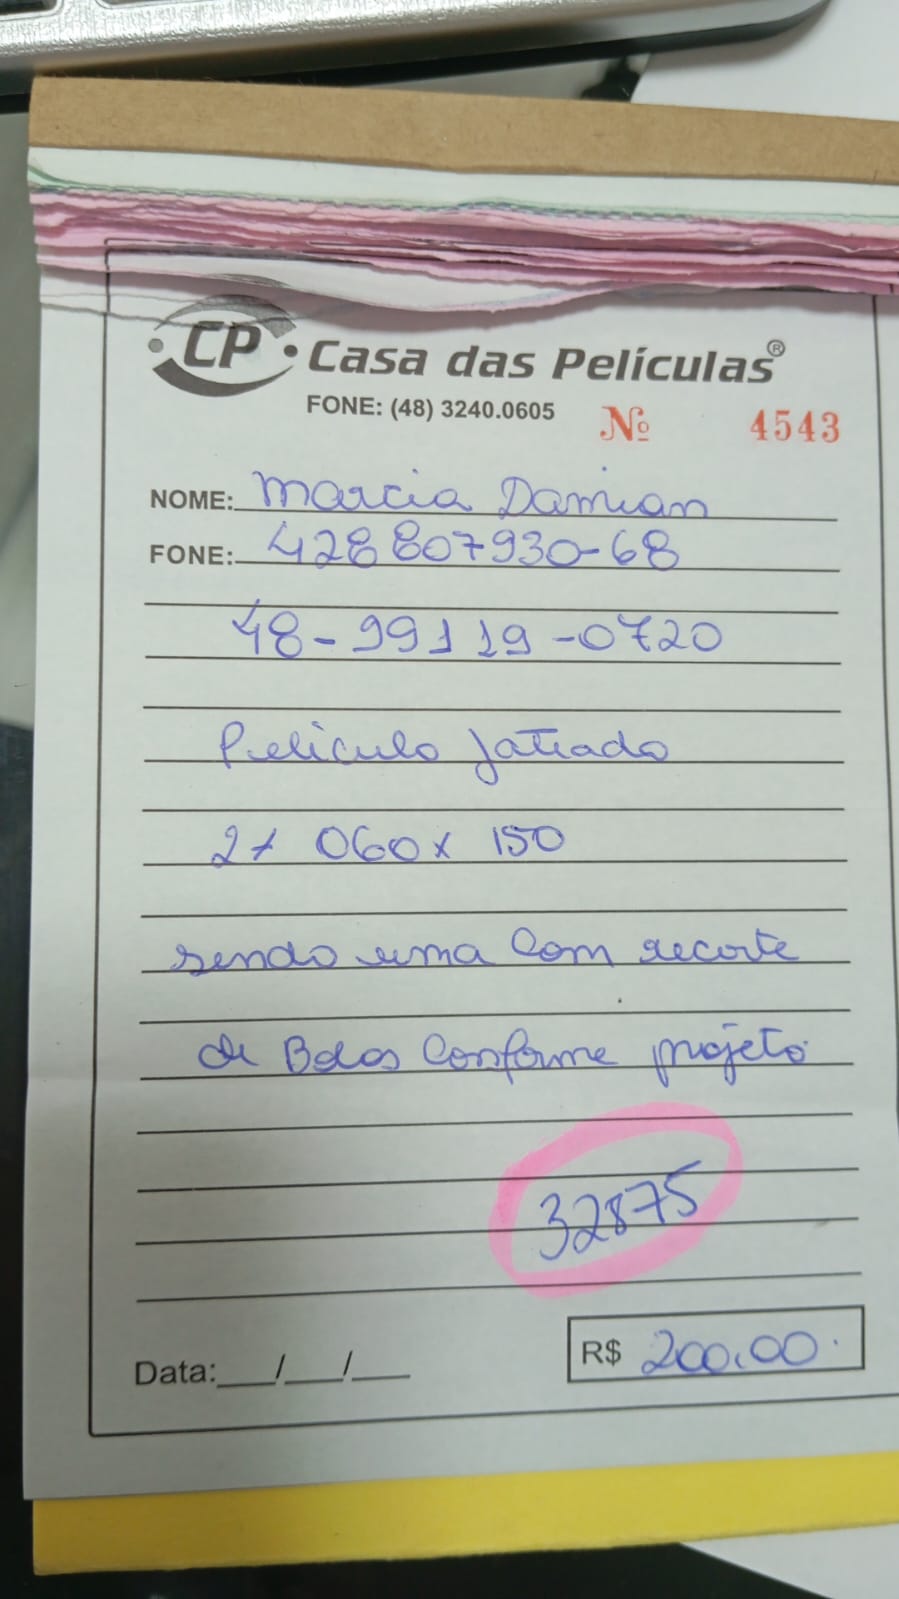 CP Casa das Películas®
FONE: (48) 3240.0605
Nº 4543
NOME: Marcia Damian
FONE: 428807930-68
48-99119-0720
Pelicula Jatiado
2x 060x 150
sendo uma com recorte
de Bolas Conforme projeto
32875
Data:___/___/___
R$ 200,00